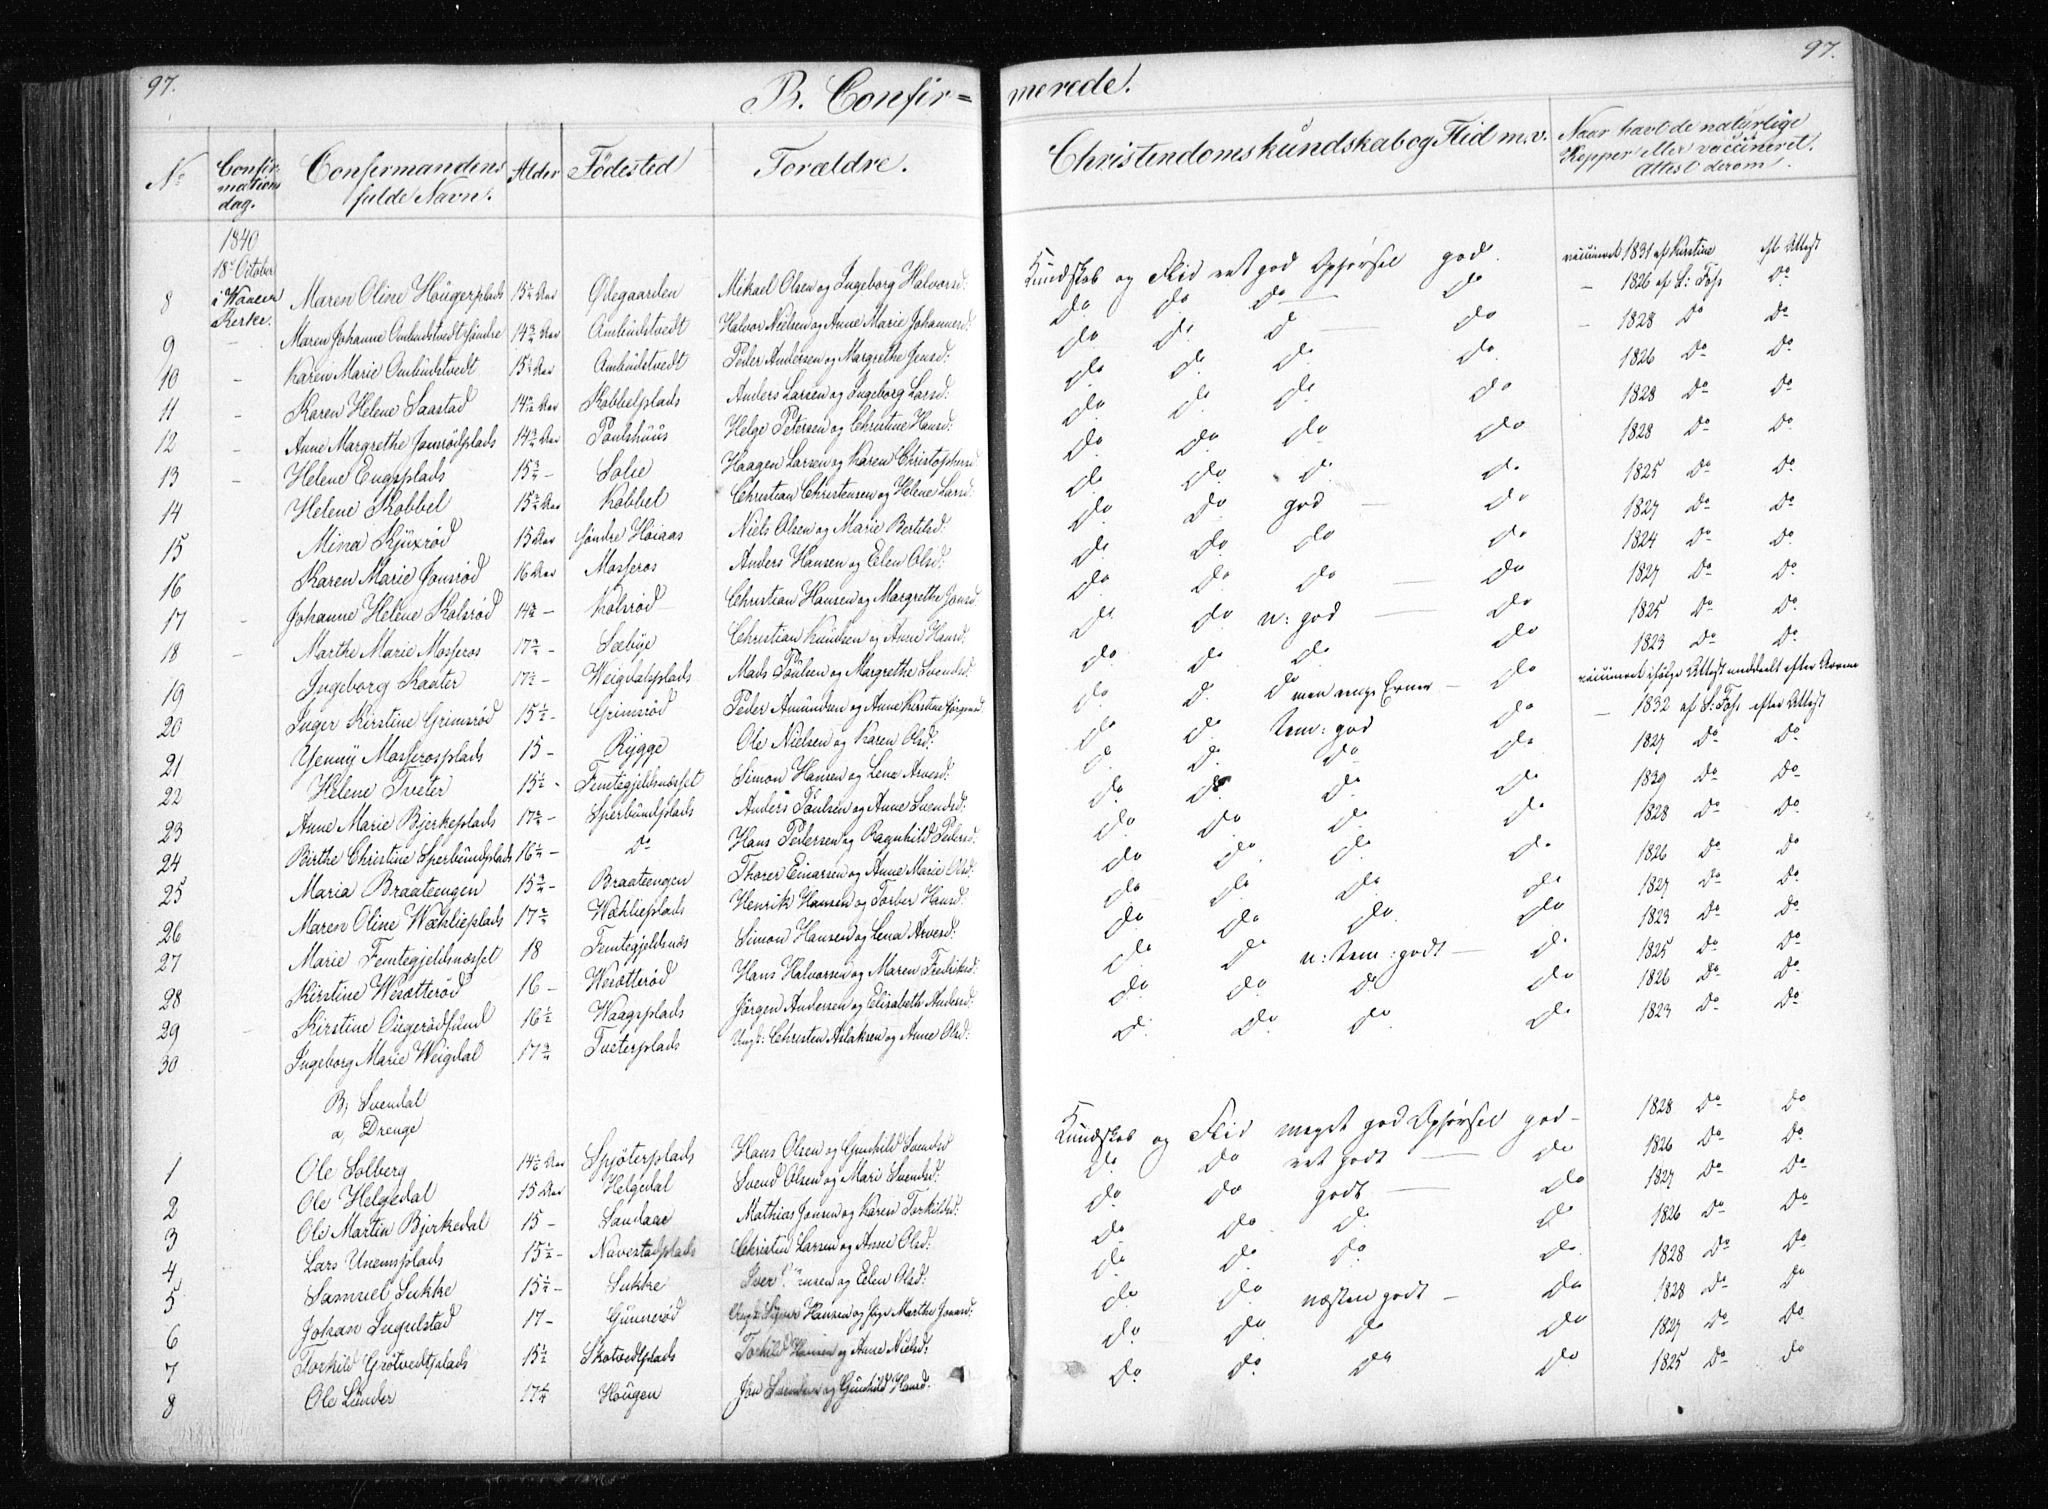 97. 97.
B. Confir= merede.
No Confir-mations dag. Confirmandens fulde Navn. Alder Fødested Forældre. Christendomskundskab og Flid m.v. Naar havt de naturlige Kopper eller vaccineret. Attest derom.
1840
18de October
i Waaler Kirke.
8 Maren Oline Hougerplads 15 1/4 Aar Ødegaarden Mikael Olsen og Ingeborg Halvorsd: Kundskab og Flid ret god Opførsel god. vaccineret 1831 af Kirstine eft Attest
9 Maren Johanne Ombudstvedt søndre 14 3/4 Aar Ambudstvedt Halvor Nielsen og Anne Marie Johannesd: Do Do Do Do — 1826 af S: Foss Do
10 Karen Marie Ombudstvedt 15 1/2 Aar Ambudstvedt Peder Andersen og Margrethe Jensd: Do D. D Do — 1828 Do Do
11 Karen Helene Saastad Kobbelplads Anders Larsen og Ingeborg Larsd: Do Do Do Do 1826 Do Do
12 Anne Margrethe Jonsrødplads 14 3/4 Aar Poulshuus Helge Petersen og Christine Hansd: Do Do Do Do 1828 Do Do
13 Helene Engsplads 15 3/4 — Solie Haagen Larsen og Karen Christophersd Do Do Do Do 1828 Do Do
14 Helene Kobbel 15 3/4 Aar Kobbel Christian Christensen og Helene Larsd: Do Do D. Do 1825 Do Do
15 Mina Kjuxrød 15 Aar søndre Høiaas Niels Olsen og Marie Bertelsd: Do Do god — Do 1827 Do Do
16 Karen Marie Jonsrød 16 Aar Mosseros Anders Hansen og Eelen Olsd: Do Do Do Do 1824 Do Do
17 Johanne Helene Kolsrød 14 3/4 — Kolsrød Christian Hansen og Margrethe Jonsd Do Do Do — Do 1827 Do Do
18 Marthe Marie Mosseros 17 3/4 — Sæbye Christian Knudsen og Anne Hansd: Do Do n: god — Do 1825 Do Do
19 Ingeborg Kaater 17 1/2 — Weigdalsplads Mads Poulsen og Margrethe Svendsd: Do Do Do Do 1823 Do Do
20 Inger Kirstine Grimsrød 15 1/2 — Grimsrød Peder Amundsen og Anne Kirstine Jørgensd: Do D. Do men ringe Evner — Do vaccineret ifølge Attest meddeelt efter
21 Yenny Mosserosplads 15 — Rygge Ole Nielsen og Karen Olsd: Do Do tem: god Do — 1832 af S: Foss efter Attest
22 Helene Tveter 15 1/2 - Femtegjeldsnæsset Simon Hansen og Lena Arvesd: Do D. Do Do 1827 Do Do
23 Anne Marie Bjerkeplads 17 3/4 — Sperbundplads Anders Poulsen og Anne Svendsd: Do Do Do Do 1839 Do Do
24 Birthe Christine Sperbundplads 16 1/4 — Do Hans Pedersen og Ragnhild Pedersd: Do Do Do Do 1828 Do Do
25 Maria Braateengen 15 3/4 — Braateengen Thorer Einarsen og Anne Marie Olsd: Do Do Do Do 1826 Do Do
26 Maren Oline Wæhlieplads 17 3/4 Wæhlieplads Henrik Hansen og Torber Hansd: Do Do Do Do 1827 Do Do
27 Marie Femtegjeldsnæsset 18 Femtegjeldsnæs Simon Hansen og Lena Arvesd: Do Do Do. Do 1823 Do Do
28 Kirstine Wesætterød 16 — Wesætterød Hans Halvorsen og Maren Fredriksd: Do D n: tem: godt — D. 1825 Do Do
29 Kirstine Ougerødsund 16 1/2 Waagsplads Jørgen Andersen og Elisabeth Andersd: Do Do D. Do 1826 Do Do
30 Ingeborg Marie Weigdal 17 3/4 Tveterplads Ungk: Christen Aslaksen og Anne Olsd: D. Do Do Do 1823 Do Do
B, Svendal
a, Drenge
1 Ole Solberg 14 1/2 Aar Spjøterplads Hans Olsen og Gunhild Svendsd Kundskab og Flid meget god Opførsel god— 1828 Do Do
2 Ole Helgedal 15 Aar Helgedal Svend Olsen og Mari Svendsd: Do Do ret godt — Do 1826 Do Do
3 Ole Martin Bjerkedal 15 — Sandaae Mathias Jonsen og Karen Torkildsd: Do Do godt — Do 1827 Do Do
4 Lars Unemsplads 15 1/2 — Navestadplads Christen Larsen og Anne Olsd: Do Do D. Do 1826 Do Do
5 Samuel Sukke 15 1/2 — Sukke Iver og Eelen Olsd: Do Do Do Do 1828 Do Do
6 Johan Ingulstad 17 — Gunnerød Hansen og Marthe Jonsd: Do Do næsten godt — Do 1828 Do Do
7 Torkild Grøtvedtplads 15 1/2 Skotvedtplads Torkild Hansen og Anne Nielsd: Do Do Do Do 1827 Do Do
8 Ole Lunder 17 1/4 Hougen Jon og Gunhild Hansd. Do Do Do Do 1825 Do Do